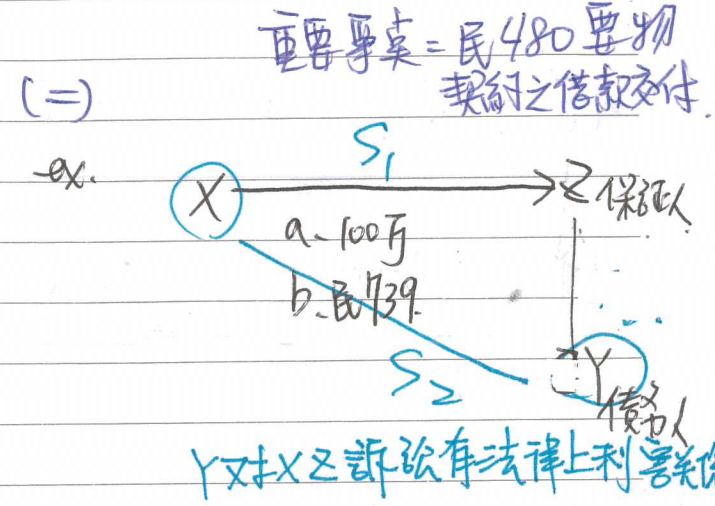 重要爭點=民480要物
契約之借款交付.
(二)
ex.
S1
X
Z 保証人
a、100万
b、民739.
S2
Y
債务人
Y对XZ訴訟有法律上利害关係